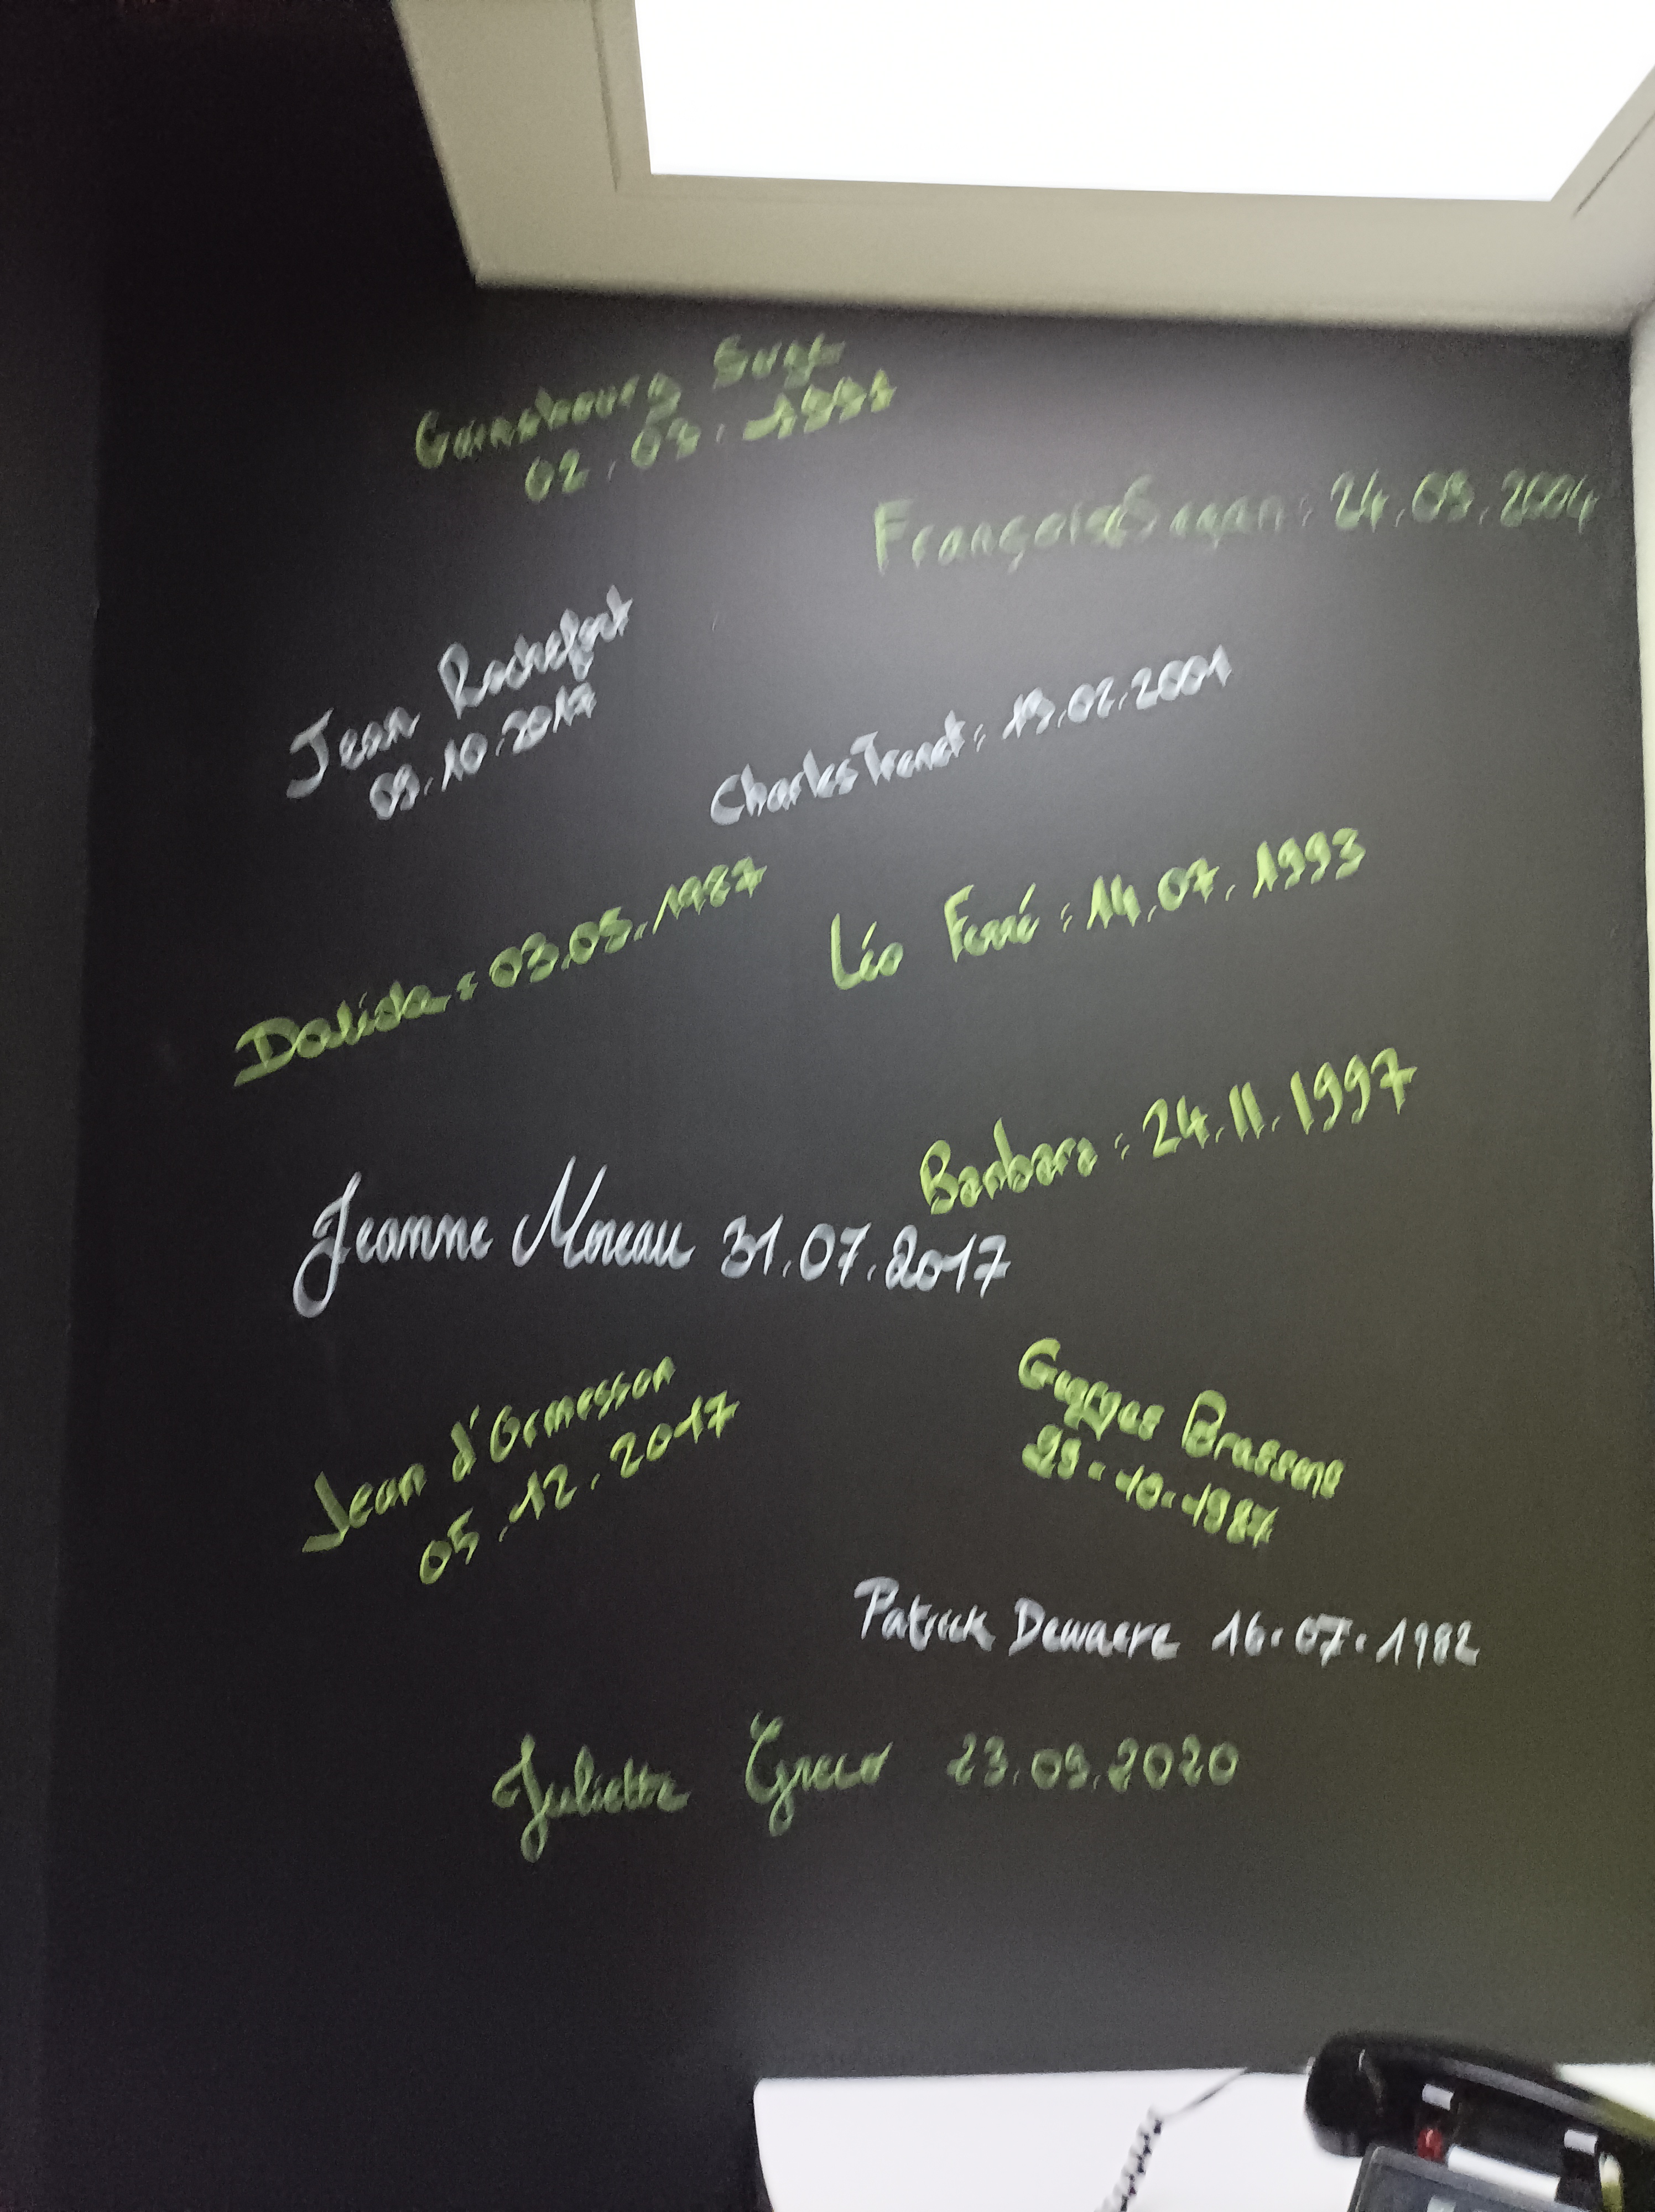 Gainsbourg Surge
02.03.1991
Françoise Sagan : 24.09.2004
Jean Rochefort
09.10.2017
Charles Trenet : 19.02.2001
Dalida : 03.05.1987
Léo Ferré : 14.07.1993
Barbara : 24.11.1997
Jeanne Moreau 31.07.2017
Jean d'Ormesson
05.12.2017
Brassens
29.10.1981
Patrick Dewaere 16.07.1982
Juliette Greco 23.09.2020